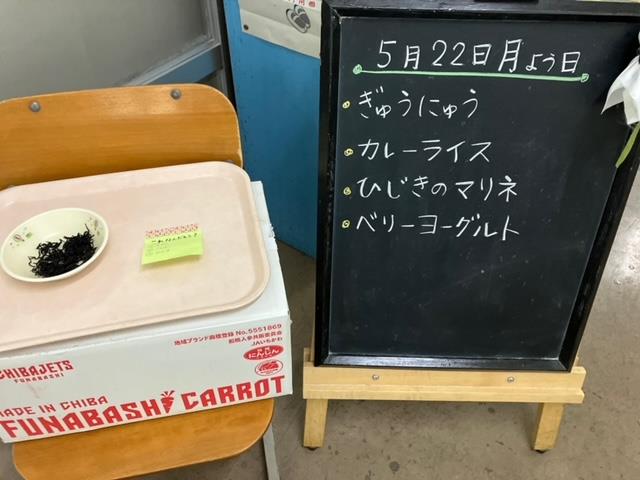 5月22日月よう日
ぎゅうにゅう
カレーライス
ひじきのマリネ
ベリーヨーグルト
地域ブランド商標登録 No.5551869
船橋人参共販委員会
JAいちかわ
にんじん
CHIBAJETS
FUNABASHI
MADE IN CHIBA
FUNABASHI CARROT